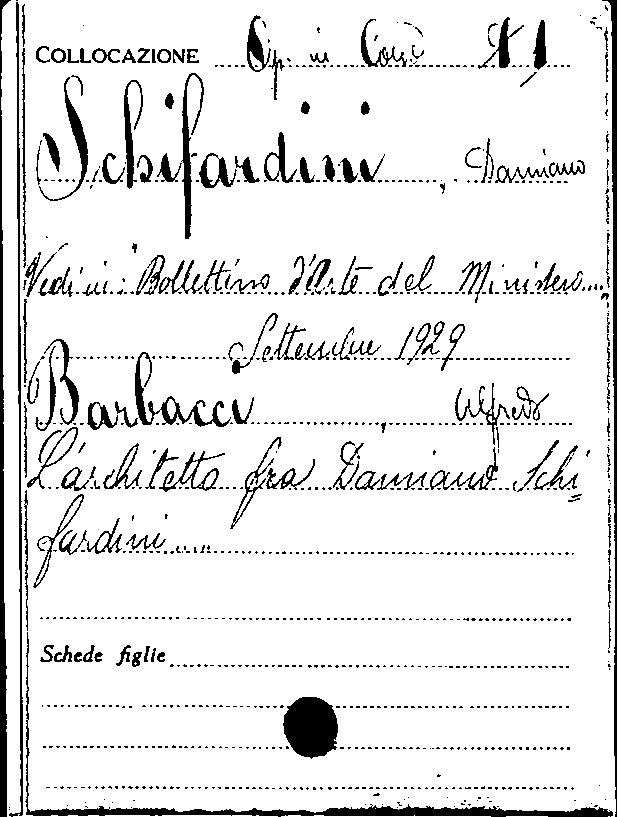 COLLOCAZIONE Op. in Corso 1
Schifardini, Damiano
Vedi in: Bollettino d'Arte del Ministero....
Settembre 1929
Barbacci, Alfredo
L'architetto fra Damiano Schi=
fardini....
Schede figlie